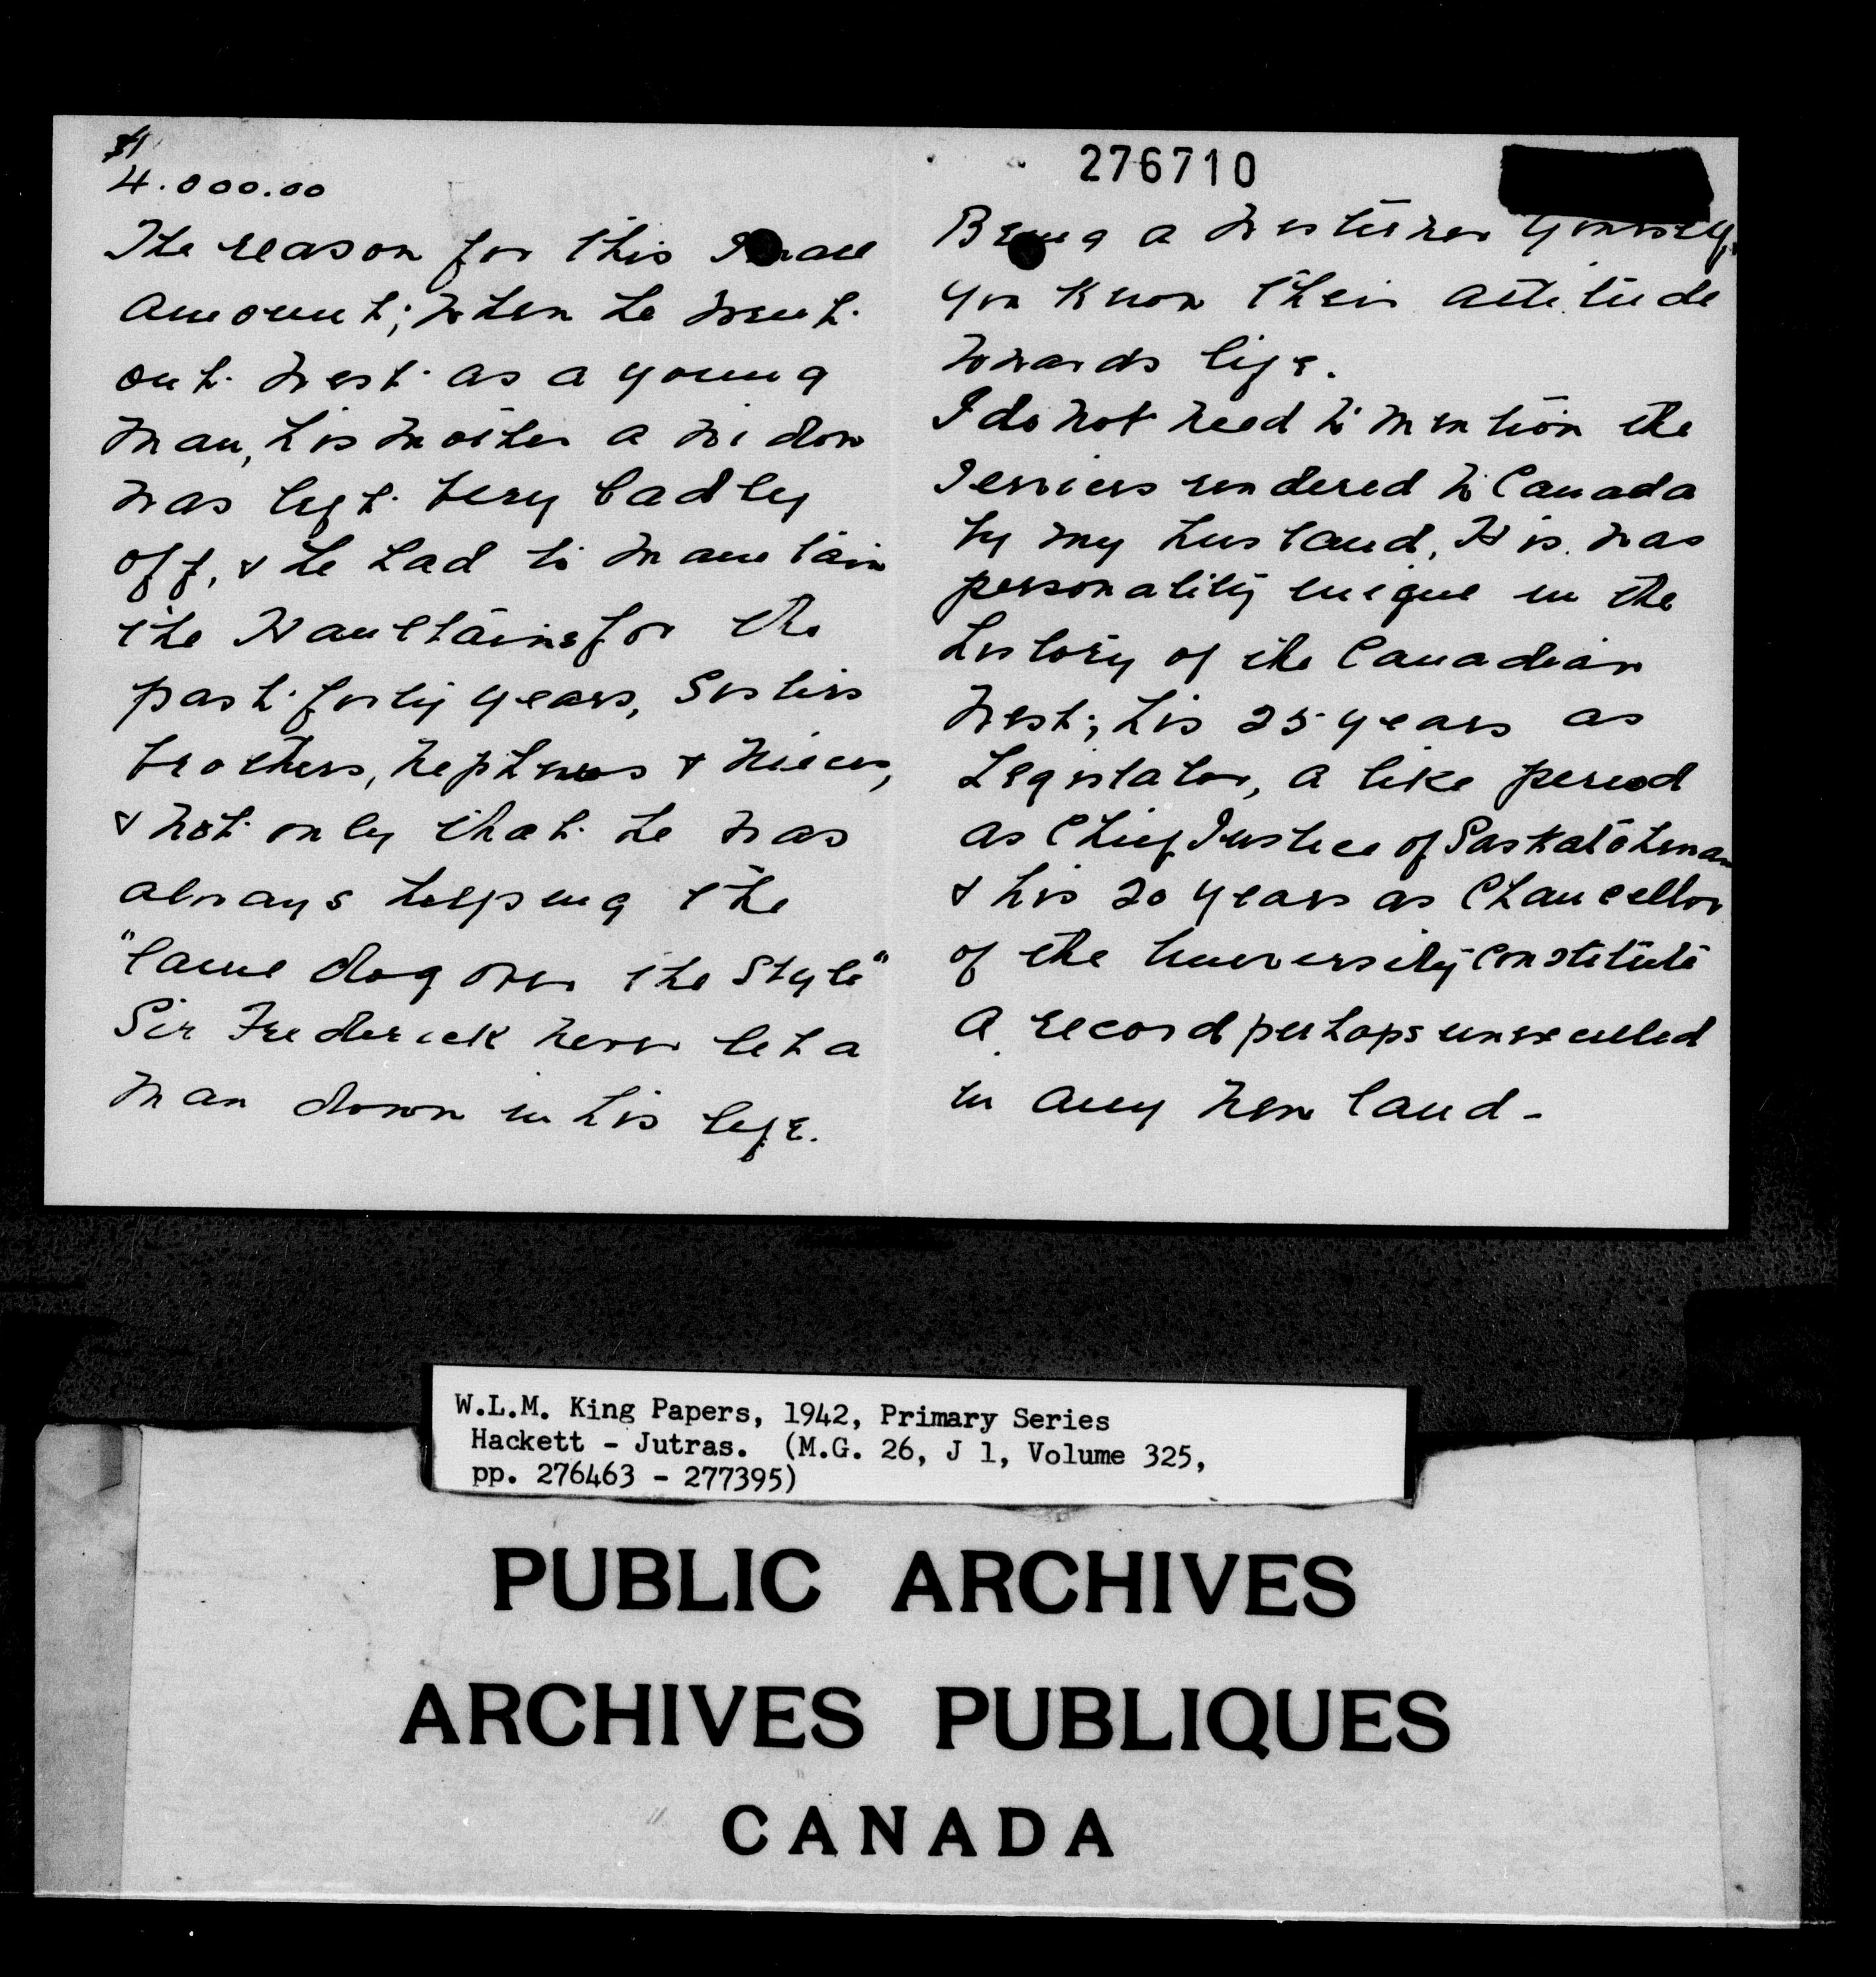 $
4.000.00
The reason for this small
amount; when he went
out west as a young
man, his mother a widow
was left very badly
off, & he had to maintain
the Haultains for the
past forty years, Sisters
brothers, nephews & nieces,
& not only that he was
always helping the
"lame dog over the style"
Sir Frederick never let a
man down in his life.
276710
Being a Westerner yourself,
you know their attitude
towards life.
I do not need to mention the
services rendered to Canada
by my husband, His was
personality unique in the
history of the Canadian
West; his 25 years as
Legislator, a like period
as Chief Justice of Saskatchewan
& his 20 years as Chancellor
of the University constitute
a record perhaps unexcelled
in any new land -
W.L.M. King Papers, 1942, Primary Series
Hackett - Jutras. (M.G. 26, J 1, Volume 325,
pp. 276463 - 277395)
PUBLIC ARCHIVES
ARCHIVES PUBLIQUES
CANADA